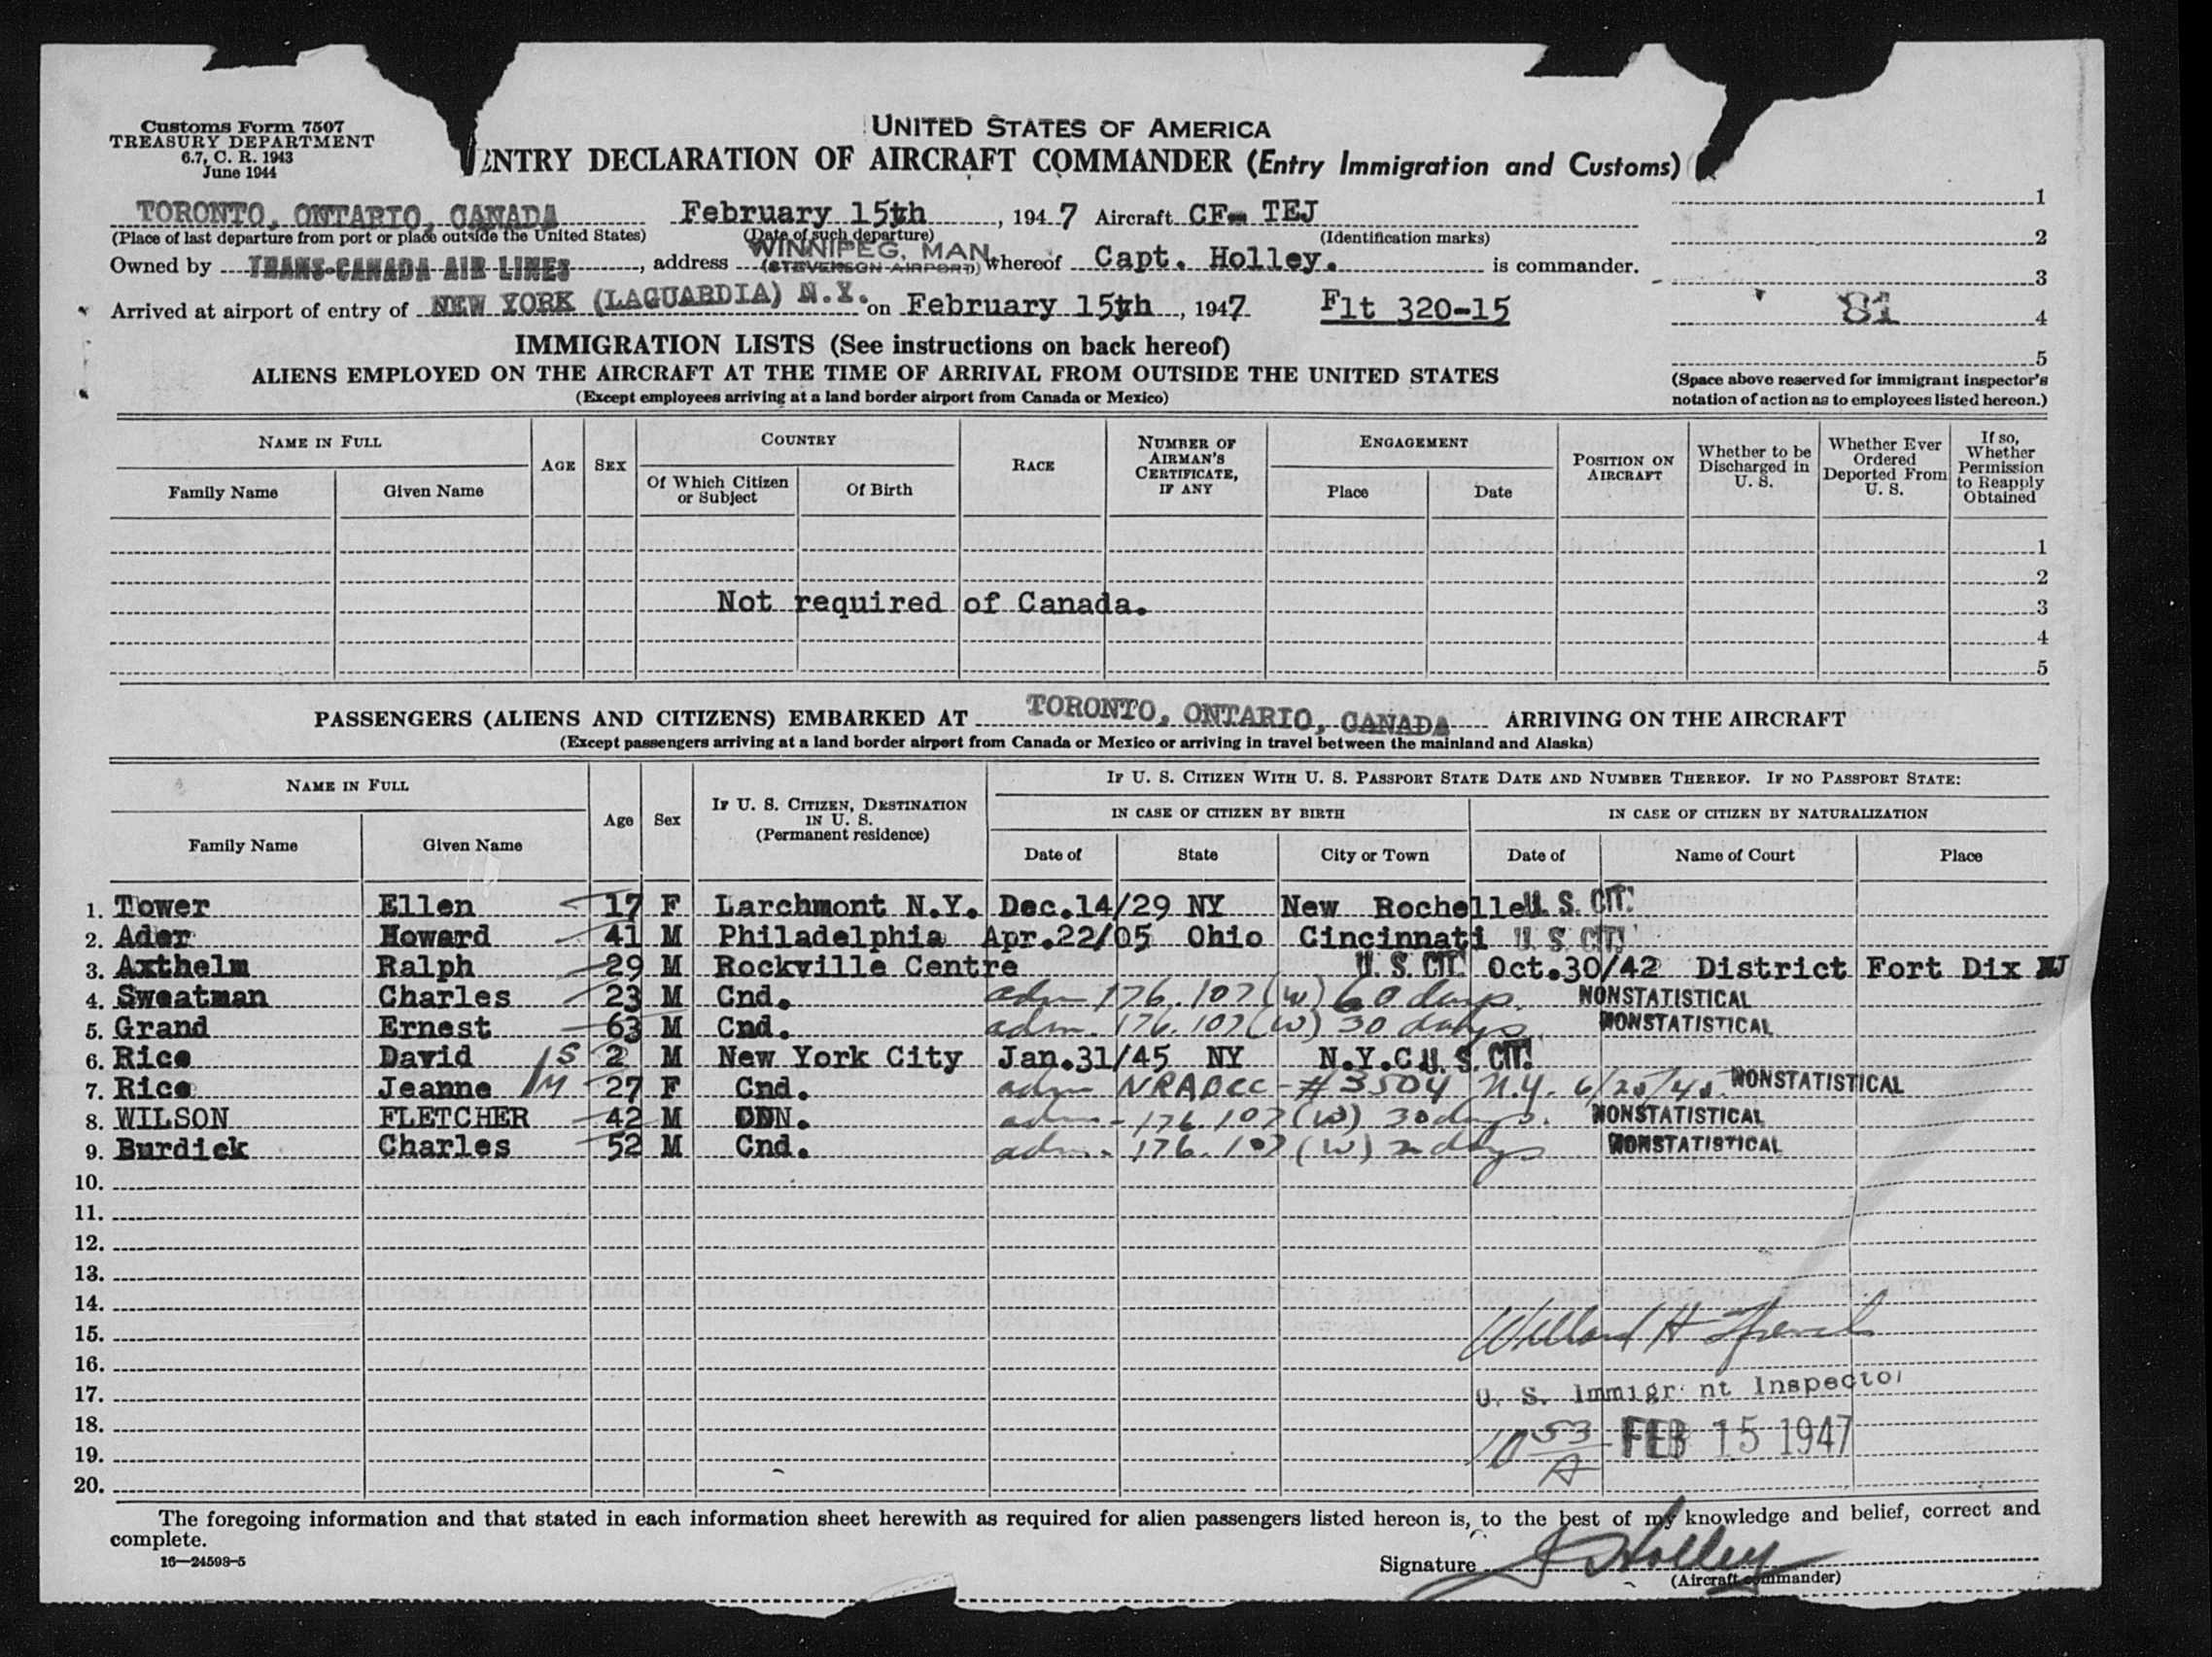 Customs Form 7507
TREASURY DEPARTMENT
6.7, C. R. 1943
June 1944
UNITED STATES OF AMERICA
ENTRY DECLARATION OF AIRCRAFT COMMANDER (Entry Immigration and Customs)
TORONTO, ONTARIO, CANADA February 15th, 1947 Aircraft CF- TEJ 1
(Place of last departure from port or place outside the United States) (Date of such departure) (Identification marks) 2
Owned by TRANS-CANADA AIR LINES, address WINNIPEG, MAN. (STEVENSON AIRPORT) whereof Capt. Holley. is commander. 3
Arrived at airport of entry of NEW YORK (LAGUARDIA) N.Y. on February 15th, 1947 Flt 320-15 81 4
5
IMMIGRATION LISTS (See instructions on back hereof)
ALIENS EMPLOYED ON THE AIRCRAFT AT THE TIME OF ARRIVAL FROM OUTSIDE THE UNITED STATES
(Except employees arriving at a land border airport from Canada or Mexico)
(Space above reserved for immigrant inspector's
notation of action as to employees listed hereon.)
NAME IN FULL AGE SEX COUNTRY RACE NUMBER OF AIRMAN'S CERTIFICATE, IF ANY ENGAGEMENT POSITION ON AIRCRAFT Whether to be Discharged in U. S. Whether Ever Ordered Deported From U. S. If so, Whether Permission to Reapply Obtained
Family Name Given Name Of Which Citizen or Subject Of Birth Place Date
1
2
Not required of Canada. 3
4
5
PASSENGERS (ALIENS AND CITIZENS) EMBARKED AT TORONTO, ONTARIO, CANADA ARRIVING ON THE AIRCRAFT
(Except passengers arriving at a land border airport from Canada or Mexico or arriving in travel between the mainland and Alaska)
NAME IN FULL Age Sex IF U. S. CITIZEN, DESTINATION IN U. S. (Permanent residence) IF U. S. CITIZEN WITH U. S. PASSPORT STATE DATE AND NUMBER THEREOF. IF NO PASSPORT STATE:
IN CASE OF CITIZEN BY BIRTH IN CASE OF CITIZEN BY NATURALIZATION
Family Name Given Name Date of State City or Town Date of Name of Court Place
1. Tower Ellen 17 F Larchmont N.Y. Dec.14/29 NY New Rochelle U. S. CIT.
2. Ader Howard 41 M Philadelphia Apr.22/05 Ohio Cincinnati U. S. CIT.
3. Axthelm Ralph 29 M Rockville Centre U. S. CIT. Oct.30/42 District Fort Dix NJ
4. Sweatman Charles 23 M Cnd. adm 176.107 (w) 60 days. NONSTATISTICAL
5. Grand Ernest 63 M Cnd. adm. 176.107 (w) 30 days NONSTATISTICAL
6. Rice David S 2 M New York City Jan.31/45 NY N.Y.C. U. S. CIT.
7. Rice Jeanne M 27 F Cnd. adm NRADCC-#3504 N.Y. NONSTATISTICAL
8. WILSON FLETCHER 42 M CDN. adm - 176.107 (w) 30 days. NONSTATISTICAL
9. Burdick Charles 52 M Cnd. adm. 176.107 (w) days NONSTATISTICAL
10.
11.
12.
13.
14.
15. Willard H
16.
17. U. S. Immigrnt Inspector
18. 10 53 A FEB 15 1947
19.
20.
The foregoing information and that stated in each information sheet herewith as required for alien passengers listed hereon is, to the best of my knowledge and belief, correct and
complete.
16—24593-5
Signature J Holley
(Aircraft commander)